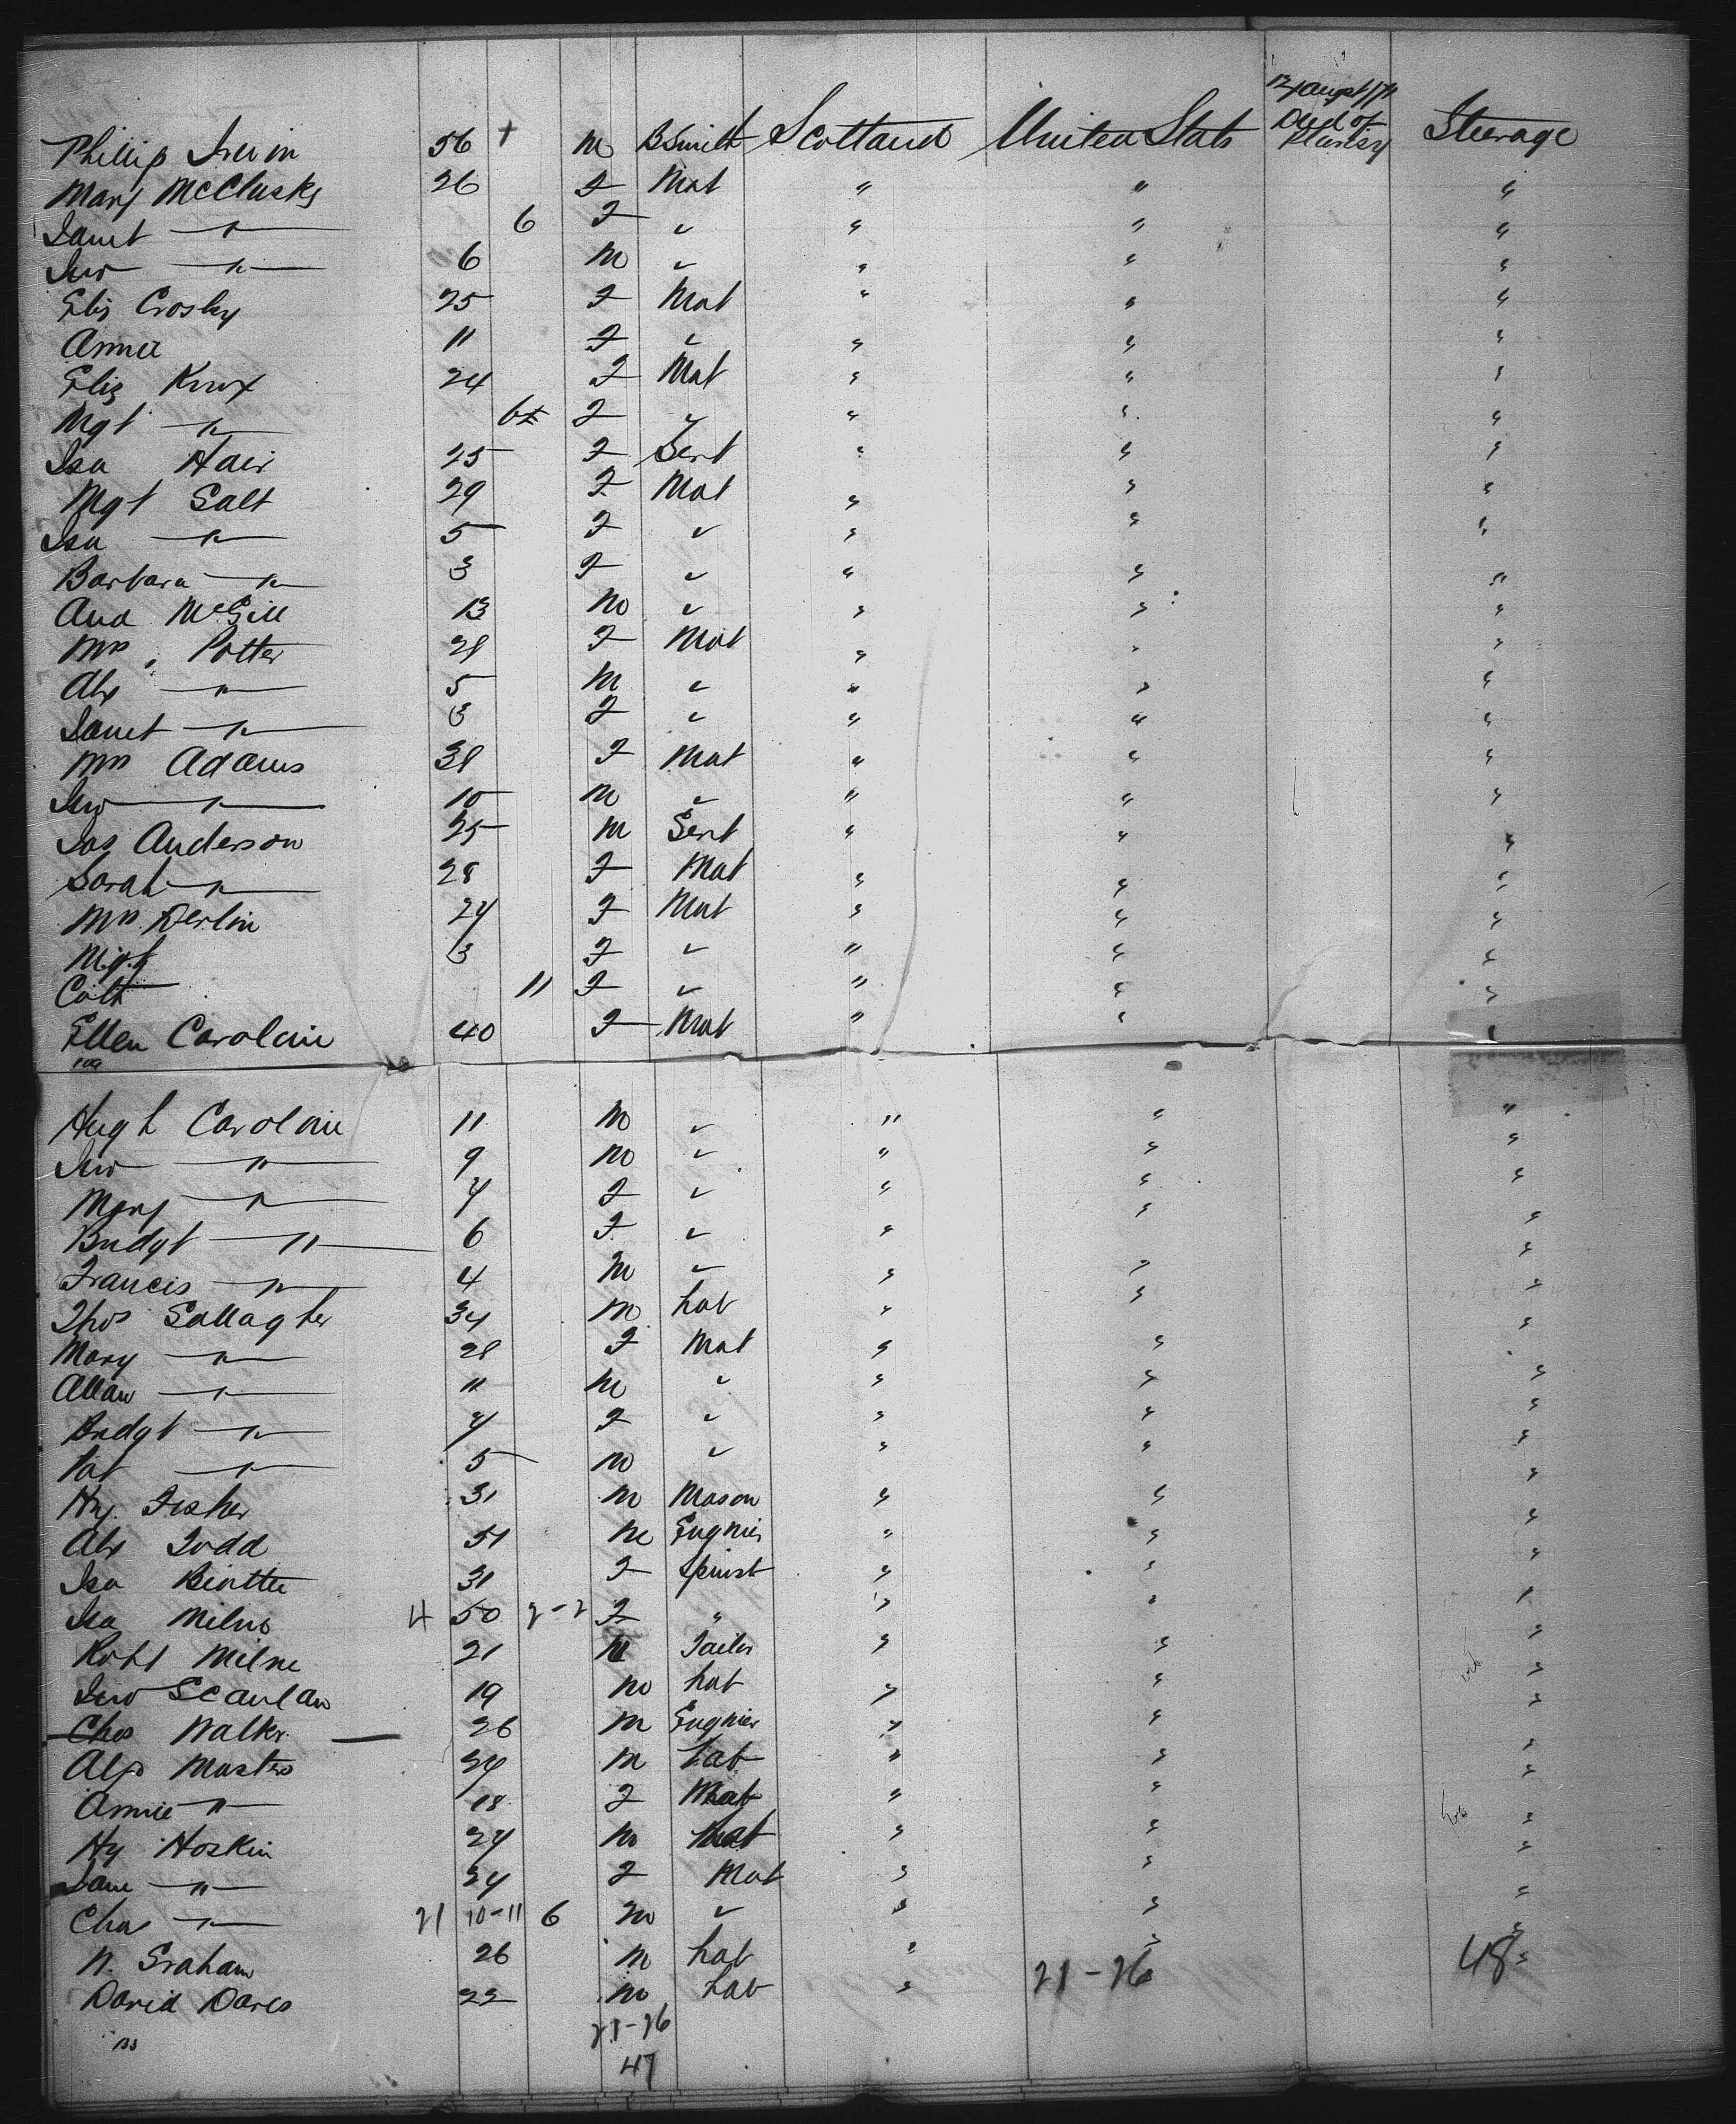 Phillip Irwin 56 + M BSmith Scotland United States 12 August /71 Died of Plurisy Steerage
Mary McClusky 26 F Mat " " "
Janet —"— 6 F " " " "
Jno —"— 6 M " " " "
Eliz Crosby 25 F Mat " " "
Annie 11 F " " " "
Eliz Knox 24 F Mat " " "
Mgt —"— 6 F " " " "
Isa Hair 25 F Sert " " "
Mgt Galt 29 F Mat " " "
Isa —"— 5 F " " " "
Barbara —"— 3 F " " " "
And McGill 13 M " " " "
Mrs Potter 28 F Mat " " "
Alx —"— 5 M " " " "
Janet —"— 3 F " " " "
Mrs Adams 38 F Mat " " "
Jno —"— 10 M " " " "
Jas Anderson 25 M Sert " " "
Sarah —"— 28 F Mat " " "
Mrs Derlin 24 F Mat " " "
Mgt 3 F " " " "
Cath 11 F " " " "
Ellen Carolain 40 F Mat " " "
109
Hugh Carolain 11 M " " " "
Jno —"— 9 M " " " "
Mary —"— 7 F " " " "
Bridgt —"— 6 F " " " "
Francis —"— 4 M " " " "
Thos Gallagher 34 M Lab " " "
Mary —"— 28 F Mat " " "
Allan —"— 11 M " " " "
Bridgt —"— 7 F " " " "
Pat —"— 5 M " " " "
Hy. Fisher 31 M Mason " " "
Alx Todd 51 M Engnier " " "
Isa Beattie 31 F Spinst " " "
Isa Milne 4 50 2-2 F " " " "
Robt Milne 21 M Tailor " " "
Jno Scanlan 19 M Lab " " "
Chas Walkr 26 M Engnier " " "
Alfd Masters 24 M Lab " " "
Annie " 18 F Mat " " "
Hy Hoskin 24 M " " "
Jane —"— 24 F Mat " " "
Chas —"— 21 10-11 6 M " " " "
N. Graham 26 M Lab " " "
David Daves 22 M Lab " 21-26 48
133 21-26
47